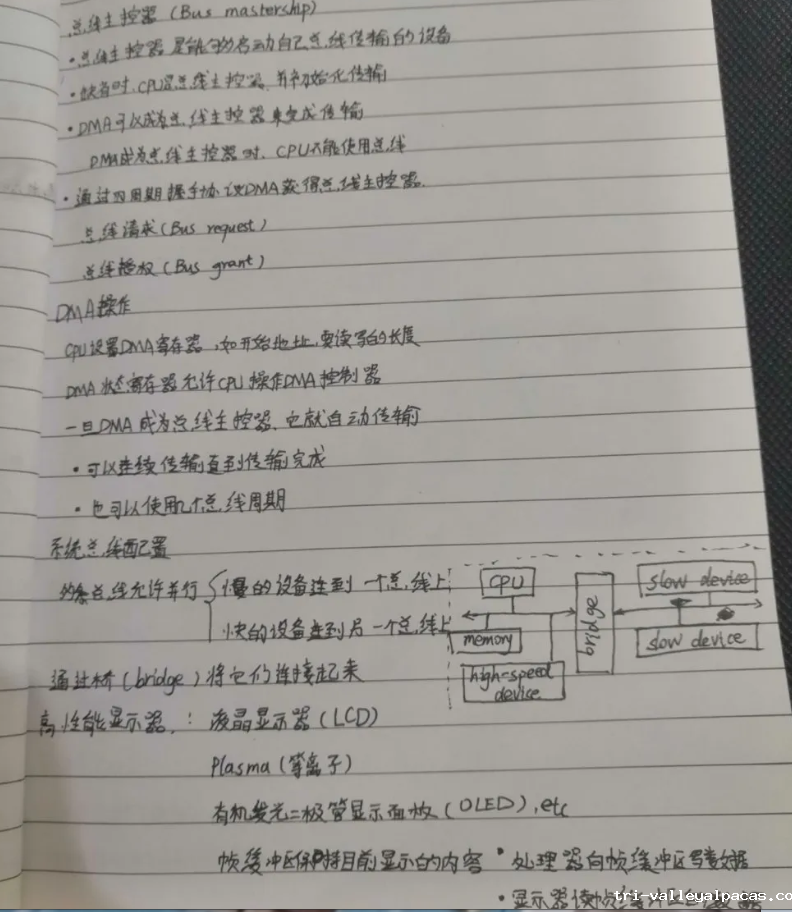 总线主控器（Bus mastership）
·总线主控器是能够启动自己总线传输的设备
·缺省时，CPU是总线主控器，并初始化传输
·DMA可以成为总线主控器来完成传输
DMA成为总线主控器时，CPU不能使用总线
·通过四周期握手协议DMA获得总线主控器.
总线请求（Bus request）
总线授权（Bus grant）
DMA操作
CPU设置DMA寄存器，如开始地址，要读写的长度
DMA状态寄存器允许CPU操作DMA控制器
一旦DMA成为总线主控器，它就自动传输
·可以连续传输直到传输完成
·也可以使用几个总线周期
系统总线配置
多条总线允许并行
慢的设备连到一个总线上
快的设备连到另一个总线上
CPU
memory
high-speed device
bridge
slow device
slow device
通过桥（bridge）将它们连接起来
高性能显示器：液晶显示器（LCD）
Plasma（等离子）
有机发光二极管显示面板（OLED），etc
帧缓冲区保持目前显示的内容 ·处理器向帧缓冲区写数据
·显示器读帧缓冲
tri-valleyalpacas.com